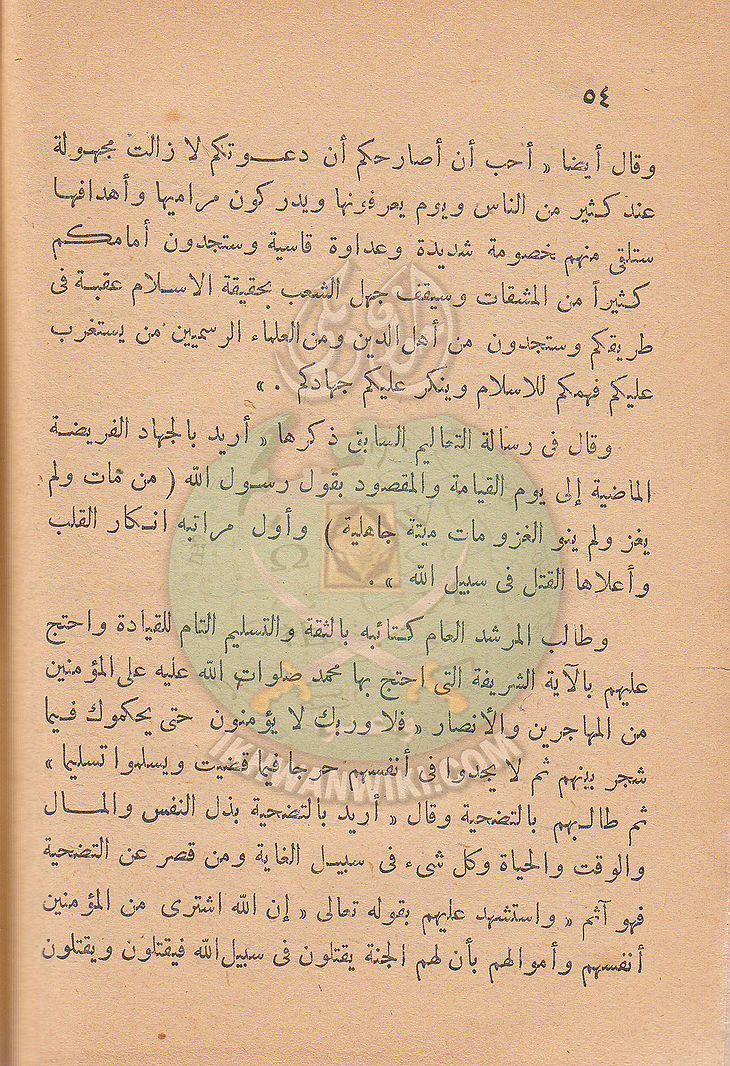 ٥٤
وقال أيضا « أحب أن أصارحكم أن دعوتكم لا زالت مجهولة
عند كثير من الناس ويوم يعرفونها ويدركون مراميها وأهدافها
ستلقى منهم خصومة شديدة وعداوة قاسية وستجدون أمامكم
كثيراً من المشقات وسيقف جهل الشعب بحقيقة الاسلام عقبة فى
طريقكم وستجدون من أهل الدين ومن العلماء الرسميين من يستغرب
عليكم فهمكم للاسلام وينكر عليكم جهادكم . »
وقال فى رسالة التعاليم السابق ذكرها « أريد بالجهاد الفريضة
الماضية إلى يوم القيامة والمقصود بقول رسول الله ( من مات ولم
يغز ولم ينو الغزو مات ميتة جاهلية ) وأول مراتبه انكار القلب
وأعلاها القتل فى سبيل الله » .
وطالب المرشد العام كتائبه بالثقة والتسليم التام للقيادة واحتج
عليهم بالآية الشريفة التى احتج بها محمد صلوات الله عليه على المؤمنين
من المهاجرين والأنصار « فلا وربك لا يؤمنون حتى يحكموك فيما
شجر بينهم ثم لا يجدوا فى أنفسهم حرجا فيما قضيت ويسلموا تسليما »
ثم طالبهم بالتضحية وقال « أريد بالتضحية بذل النفس والمال
والوقت والحياة وكل شىء فى سبيل الغاية ومن قصر عن التضحية
فهو آثم « واستشهد عليهم بقوله تعالى « إن الله اشترى من المؤمنين
أنفسهم وأموالهم بأن لهم الجنة يقتلون فى سبيل الله فيقتلون ويقتلون
IKHWANWIKI.COM